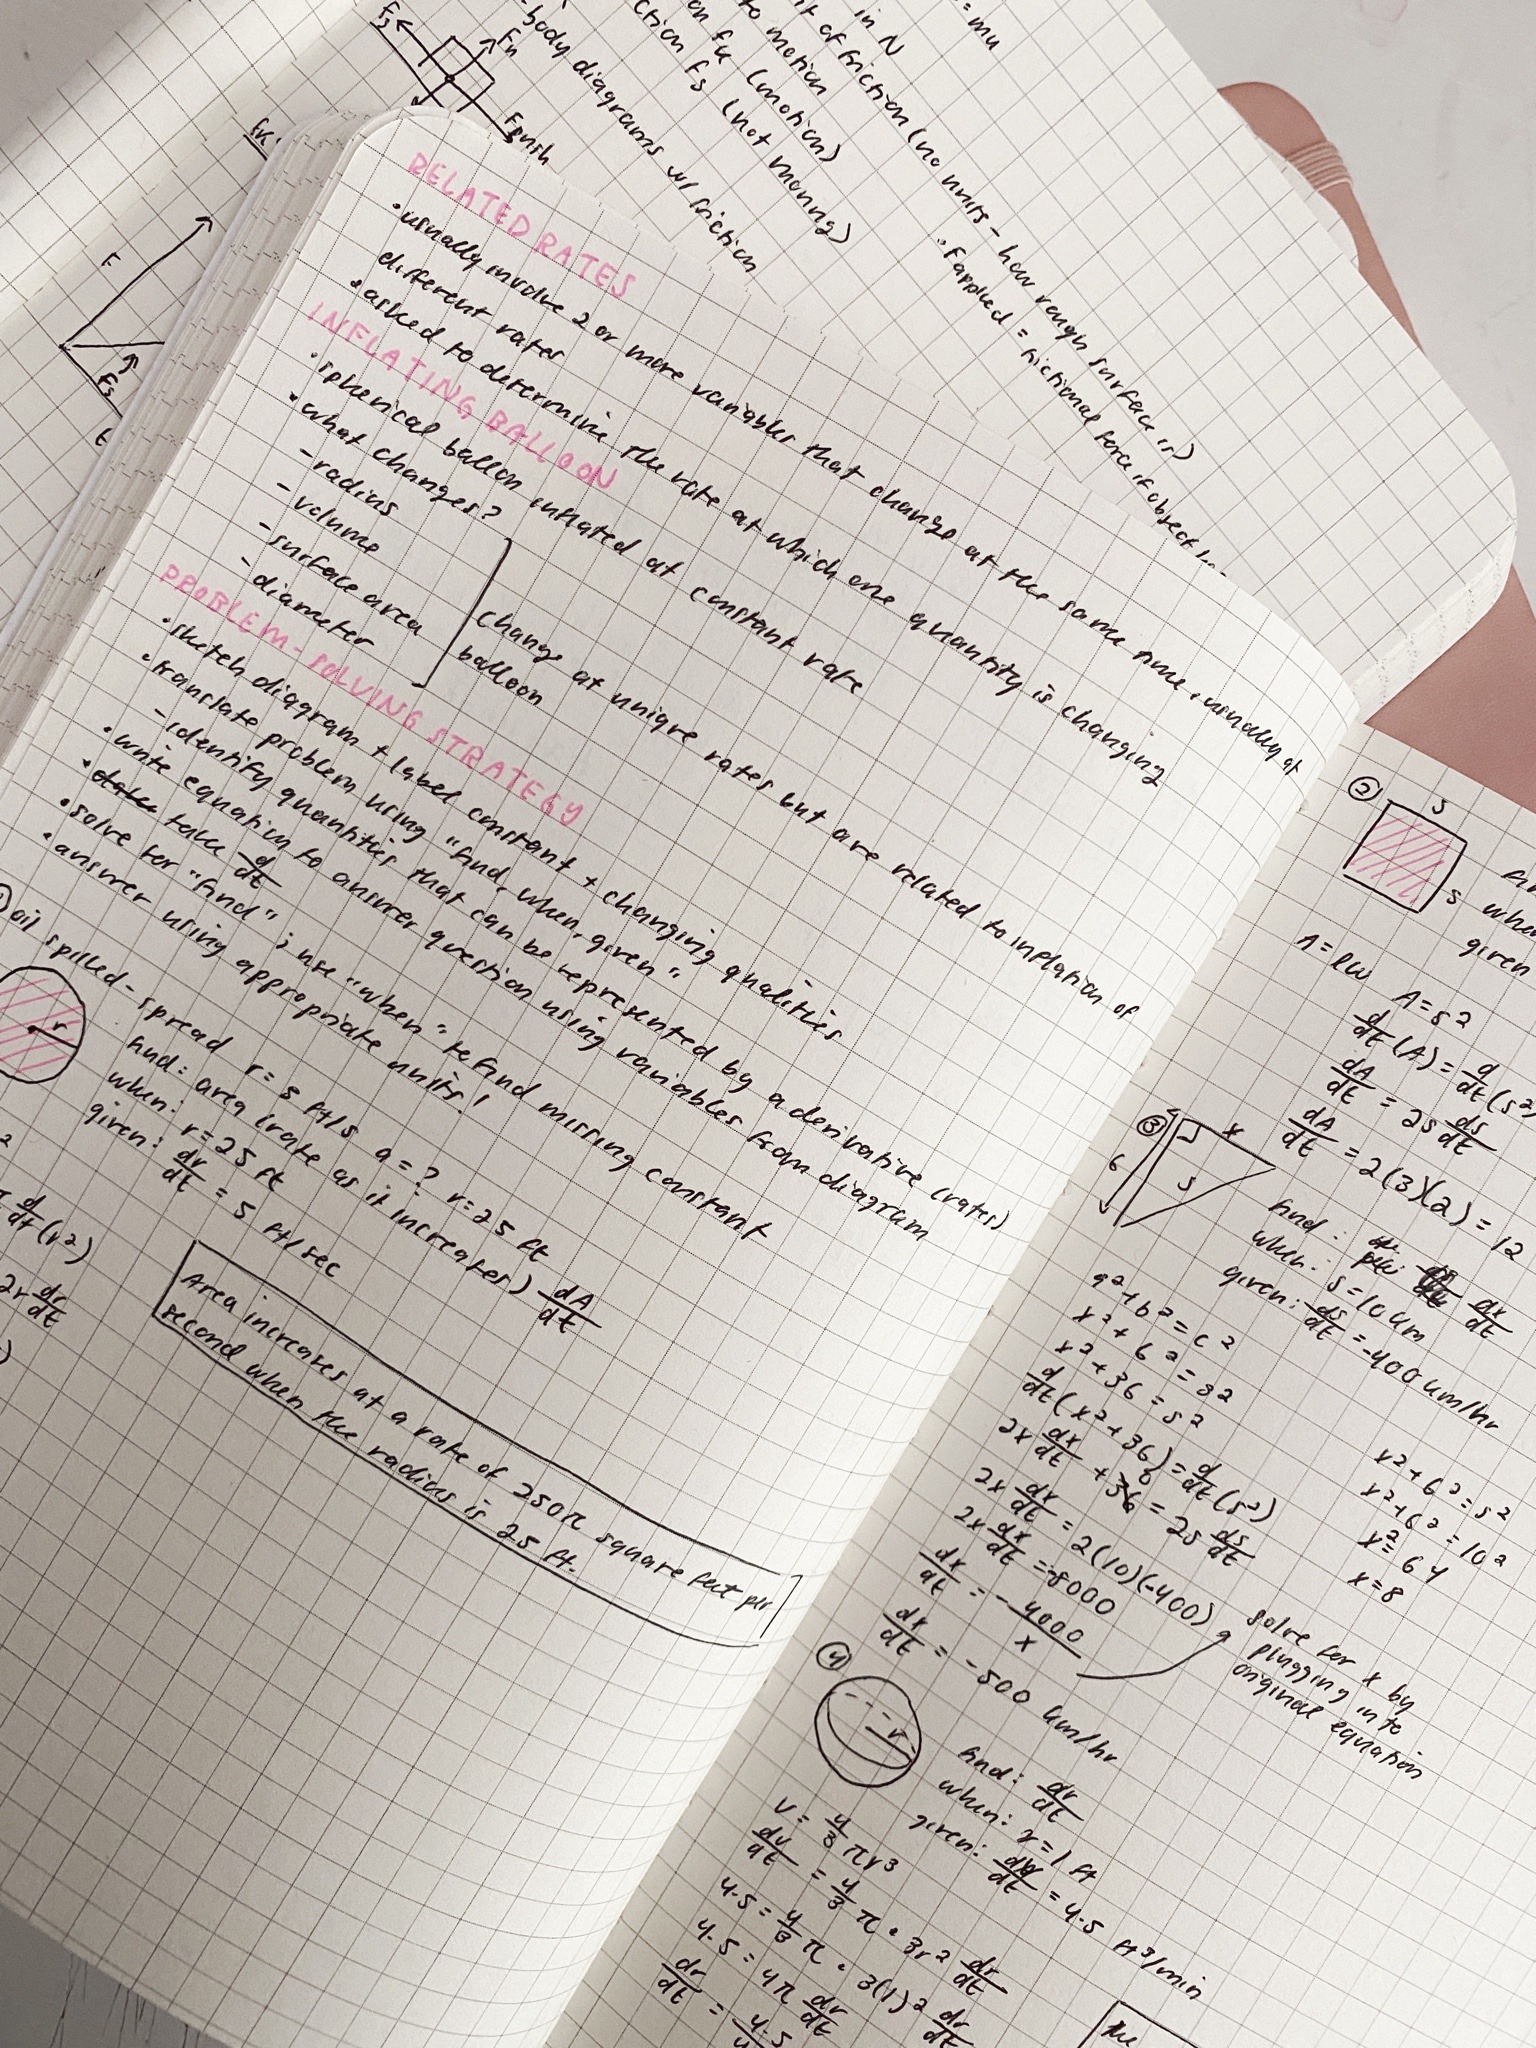 Fn
Fpush
-body diagrams w/ friction
in N
to motion
t of friction (no units - how rough surface is)
fk (motion)
ction fs (not moving)
• Fapplied = frictional force if object
= mu
fk
F
Fs
t
RELATED RATES
• usually involve 2 or more variables that change at the same time, usually at
different rates
• asked to determine the rate at which one quantity is changing
INFLATING BALLOON
• spherical balloon inflated at constant rate
• what changes?
- radius
- volume
- surface area
- diameter
change at unique rates but are related to inflation of
balloon
PROBLEM-SOLVING STRATEGY
• sketch diagram + label constant + changing qualities
• translate problem using "find, when, given"
- identify quantities that can be represented by a derivative (rates)
• write equation to answer question using variables from diagram
• take d/dt
• solve for "find"; use "when" to find missing constant
• answer using appropriate units!
① oil spilled - spread r = 5 ft/s a = ? r = 25 ft
r
find: area (rate as it increases) dA/dt
when: r = 25 ft
given: dr/dt = 5 ft/sec
2
d/dt (r²)
2r dr/dt
)
Area increases at a rate of 250π square feet per
second when the radius is 25 ft.
②
s
s
when
given
A = lw
A = s²
d/dt (A) = d/dt (s²)
dA/dt = 2s ds/dt
dA/dt = 2(3)(2) = 12
③
x
6
s
find: dx/dt
when: s = 10 km
given: ds/dt = -400 km/hr
a² + b² = c²
x² + 6² = s²
x² + 36 = s²
d/dt (x² + 36) = d/dt (s²)
2x dx/dt + 36 0 = 2s ds/dt
2x dx/dt = 2(10)(-400)
2x dx/dt = -8000
dx/dt = - 4000/x
dx/dt = -500 km/hr
x² + 6² = s²
x² + 6² = 10²
x² = 64
x = 8
solve for x by
plugging into
original equation
④
r
find: dr/dt
when: r = 1 ft
given: dV/dt = 4.5 ft³/min
V = 4/3 πr³
dV/dt = 4/3 π · 3r² dr/dt
4.5 = 4/3 π · 3(1)² dr/dt
4.5 = 4π dr/dt
dr/dt = 4.5
The